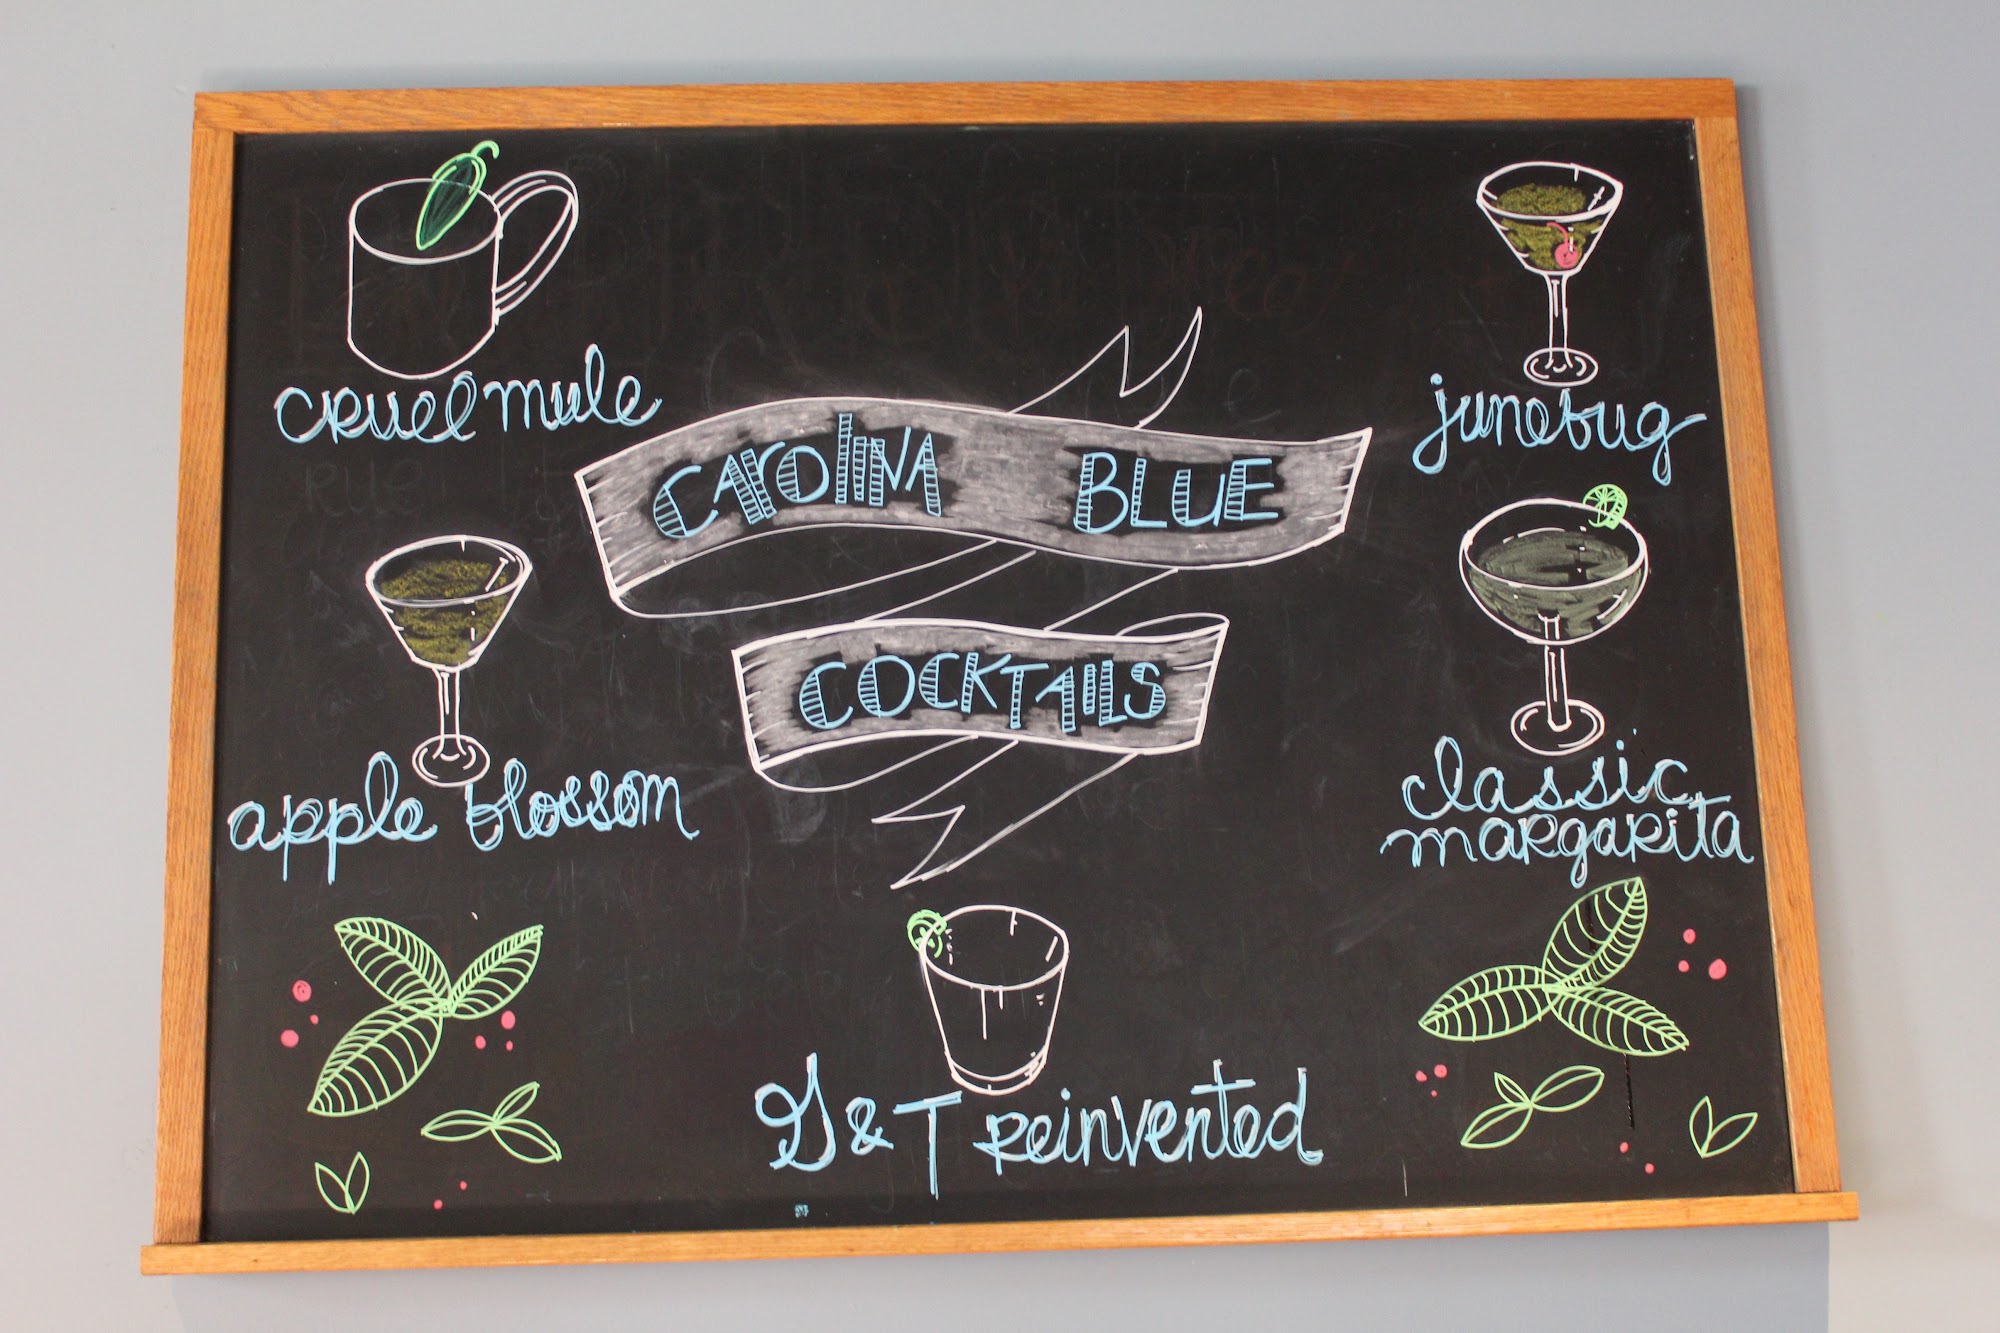 cruel mule
junebug
CArOlINA BLUE
COCKTAILS
apple blossom
classic
margarita
G & T reinvented